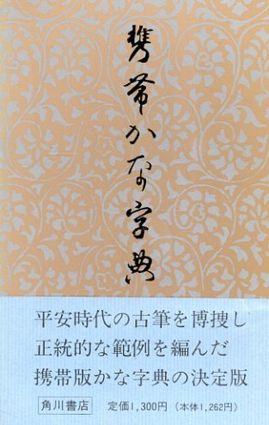 携帯かな字典
平安時代の古筆を博捜し
正統的な範例を編んだ
携帯版かな字典の決定版
角川書店 定価1,300円 (本体1,262円)